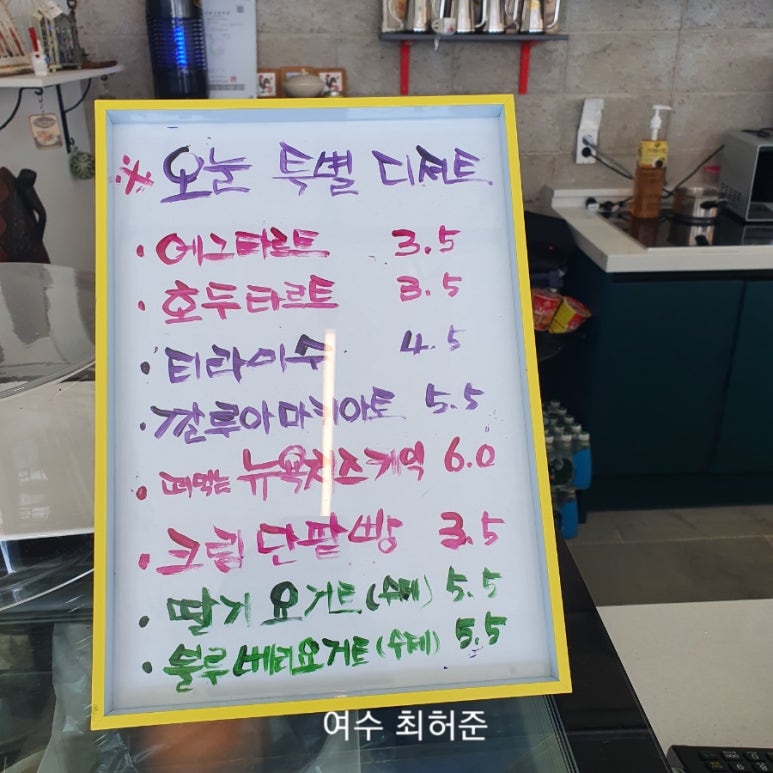 ※ 오눌 특별 디젙트
• 에그타르트 3.5
• 호두타르트 3.5
• 티라미수 4.5
• 깔루아마키아토 5.5
• 떠먹는 뉴욕치즈케익 6.0
• 크림단팥빵 3.5
• 딸기요거트(수제) 5.5
• 블루베리요거트(수제) 5.5
여수 최허준